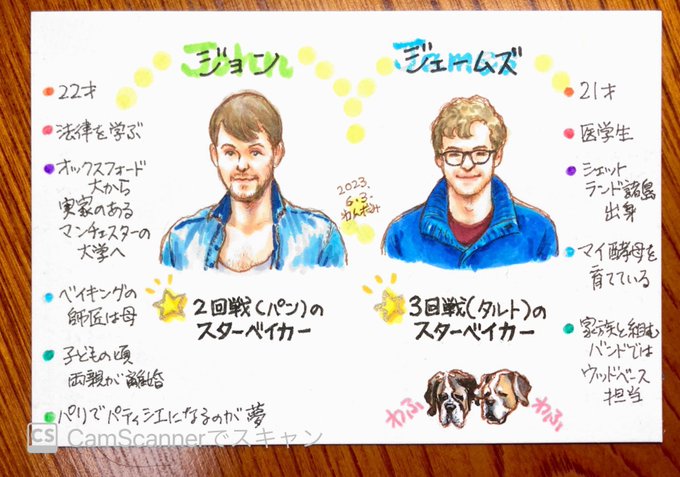 John
ジョン
22才
法律を学ぶ
オックスフォード
大から
実家のある
マンチェスターの
大学へ
ベイキングの
師匠は母
子どもの頃
両親が離婚
パリでパティシエになるのが夢
2回戦(パン)の
スターベイカー
2023.
6.3.
James
ジェームズ
21才
医学生
シェット
ランド諸島
出身
マイ酵母を
育てている
家族と組む
バンドでは
ウッドベース
担当
3回戦(タルト)の
スターベイカー
わふ
わふ
CS CamScannerでスキャン